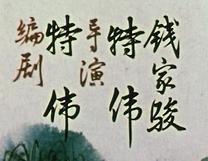 编剧 特伟
导演 特伟
钱家骏